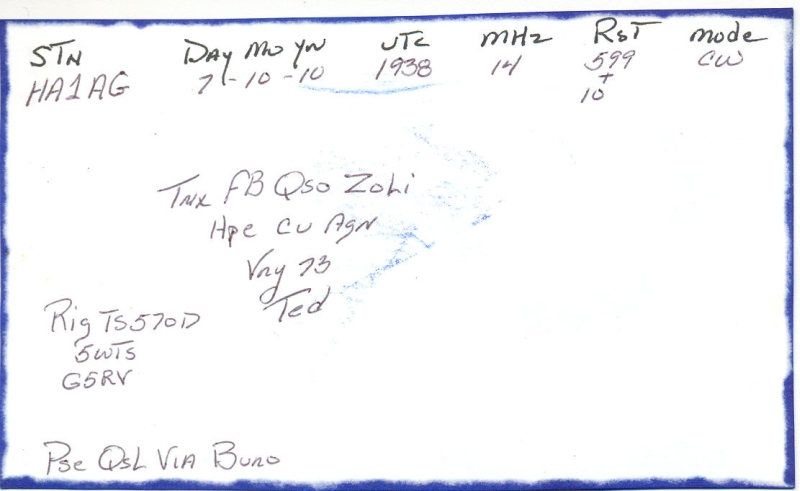 STN Day Mo Yr UTC MHz RST mode
HA1AG 7-10-10 1938 14 599 CW
+
10
Tnx FB Qso Zoli
Hpe cu Agn
Vry 73
Ted
Rig TS570D
5wTS
G5RV
Pse QsL VIA Buro